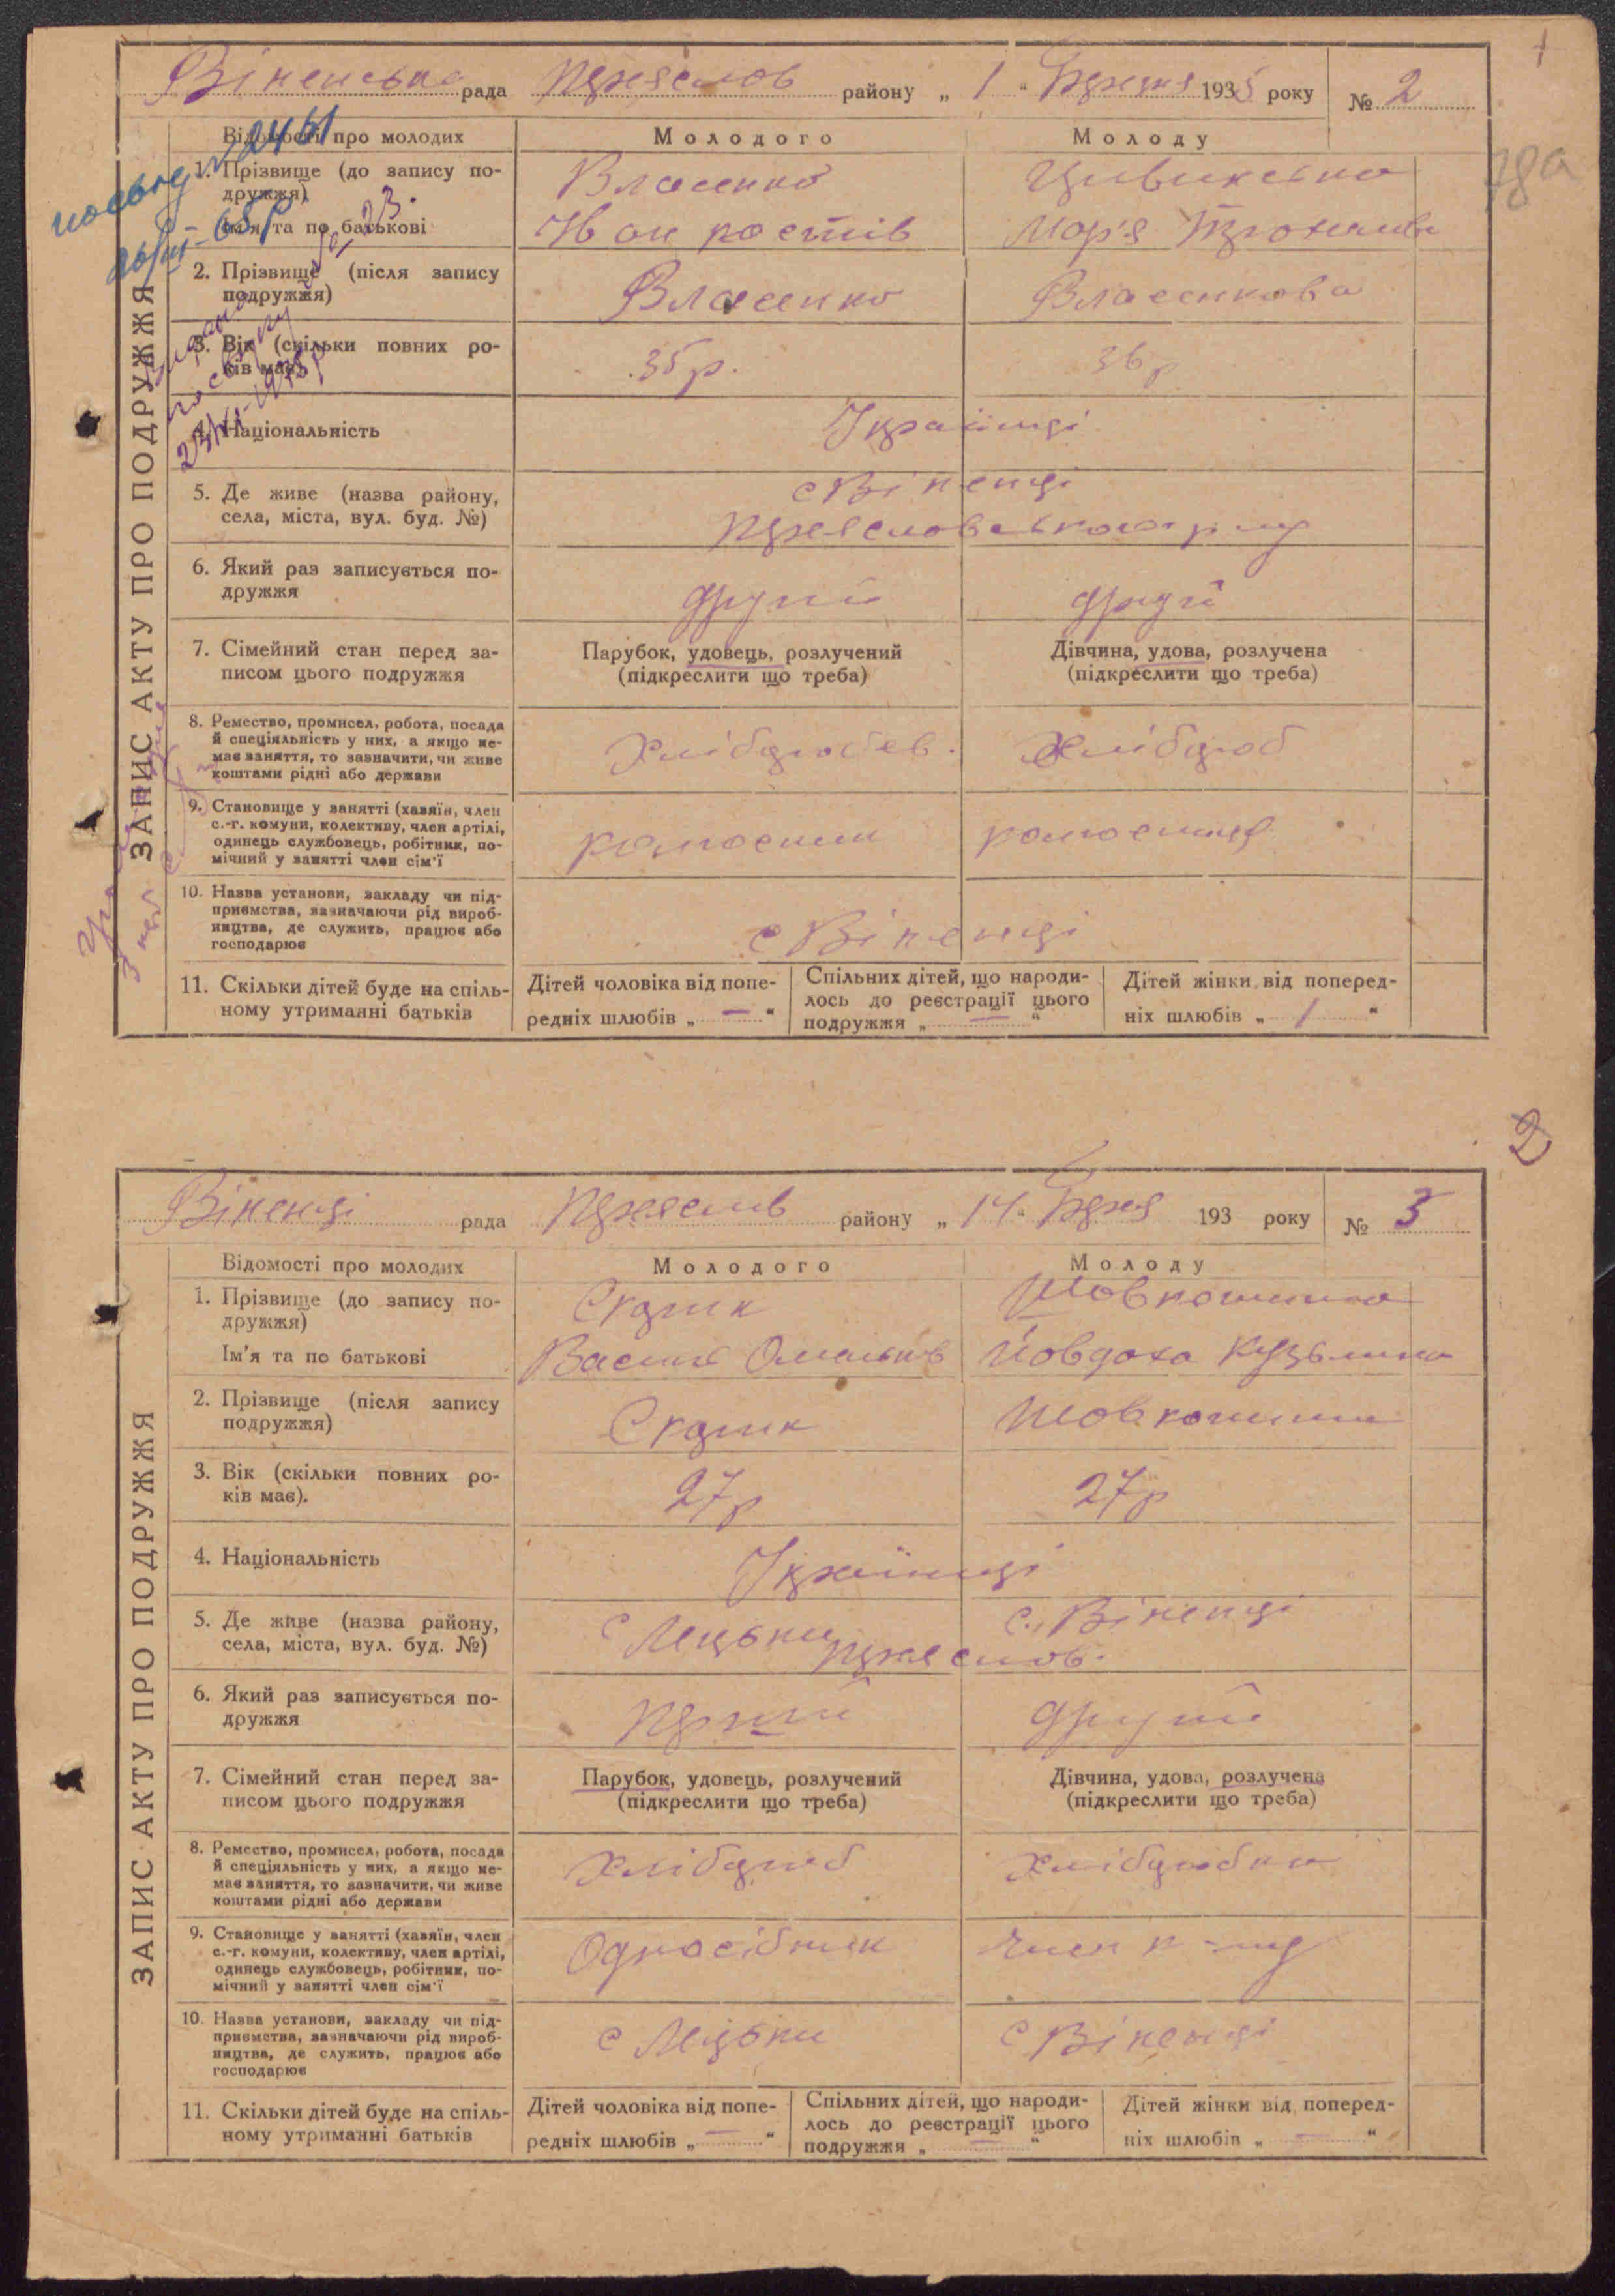 1
Віненська рада Переяслов району „ 1 " Березня 1935 року № 2
Відомості про молодих Молодого Молоду
ЗАПИС АКТУ ПРО ПОДРУЖЖЯ
1. Прізвище (до запису по-
дружжя) Власенко
Ім'я та по батькові
2. Прізвище (після запису
подружжя) Власенко Власенкова
3. Вік (скільки повних ро-
ків має) 35 р. 36 р
4. Національність Українці
5. Де живе (назва району, с Віненці
села, міста, вул. буд. №)
6. Який раз записується по-
дружжя другий другий
7. Сімейний стан перед за- Парубок, удовець, розлучений Дівчина, удова, розлучена
писом цього подружжя (підкреслити що треба) (підкреслити що треба)
8. Ремество, промисел, робота, посада
й спеціяльність у них, а якщо не- Хлібороб
має заняття, то зазначити, чи живе
коштами рідні або держави
9. Становище у занятті (хазяїн, член
с.-г. комуни, колективу, член артілі,
одинець службовець, робітник, по-
мічний у занятті член сім'ї
10. Назва установи, закладу чи під-
приємства, зазначаючи рід вироб-
ництва, де служить, працює або с Віненці
господарює
11. Скільки дітей буде на спіль- Дітей чоловіка від попе- Спільних дітей, що народи- Дітей жінки від поперед-
ному утриманні батьків редніх шлюбів „ — " лось до реєстрації цього ніх шлюбів „ 1 "
подружжя „ — "
2
Віненці рада Переяслов району „ 14 " Берез 193 року № 3
Відомості про молодих Молодого Молоду
ЗАПИС АКТУ ПРО ПОДРУЖЖЯ
1. Прізвище (до запису по-
дружжя) Скорик
Ім'я та по батькові Йовдоха Кузьмина
2. Прізвище (після запису
подружжя) Скорик
3. Вік (скільки повних ро-
ків має). 27 р 27 р
4. Національність Українці
5. Де живе (назва району, с. Віненці
села, міста, вул. буд. №) с Лецьки Переяслов.
6. Який раз записується по-
дружжя перший другий
7. Сімейний стан перед за- Парубок, удовець, розлучений Дівчина, удова, розлучена
писом цього подружжя (підкреслити що треба) (підкреслити що треба)
8. Ремество, промисел, робота, посада
й спеціяльність у них, а якщо не- Хлібороб Хліборобка
має заняття, то зазначити, чи живе
коштами рідні або держави
9. Становище у занятті (хазяїн, член
с.-г. комуни, колективу, член артілі, Односібник
одинець службовець, робітник, по-
мічний у занятті член сім'ї
10. Назва установи, закладу чи під-
приємства, зазначаючи рід вироб- с Лецьки с Віненці
ництва, де служить, працює або
господарює
11. Скільки дітей буде на спіль- Дітей чоловіка від попе- Спільних дітей, що народи- Дітей жінки від поперед-
ному утриманні батьків редніх шлюбів „ — " лось до реєстрації цього ніх шлюбів „ — "
подружжя „ — "